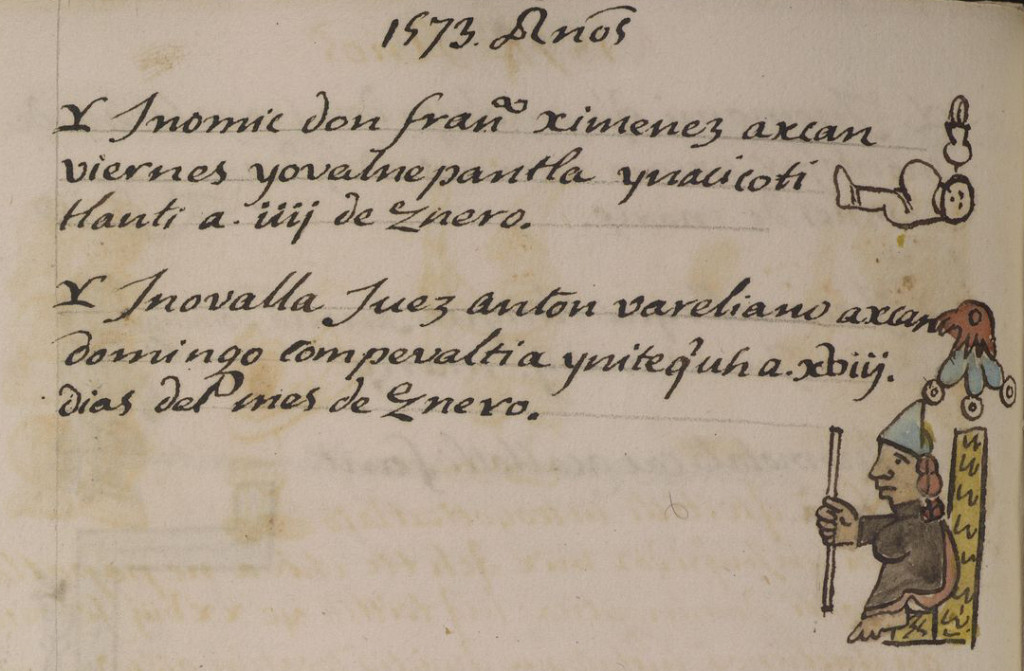 1573. Años
Y Jnomic don franco ximenez axcan
viernes yovalnepantla ynacicoti
tlanti a. iiij de Enero.
Y Jnovalla Juez anton vareliano axcan
domingo compevaltia ynitequh a. xviij.
dias del mes de Enero.